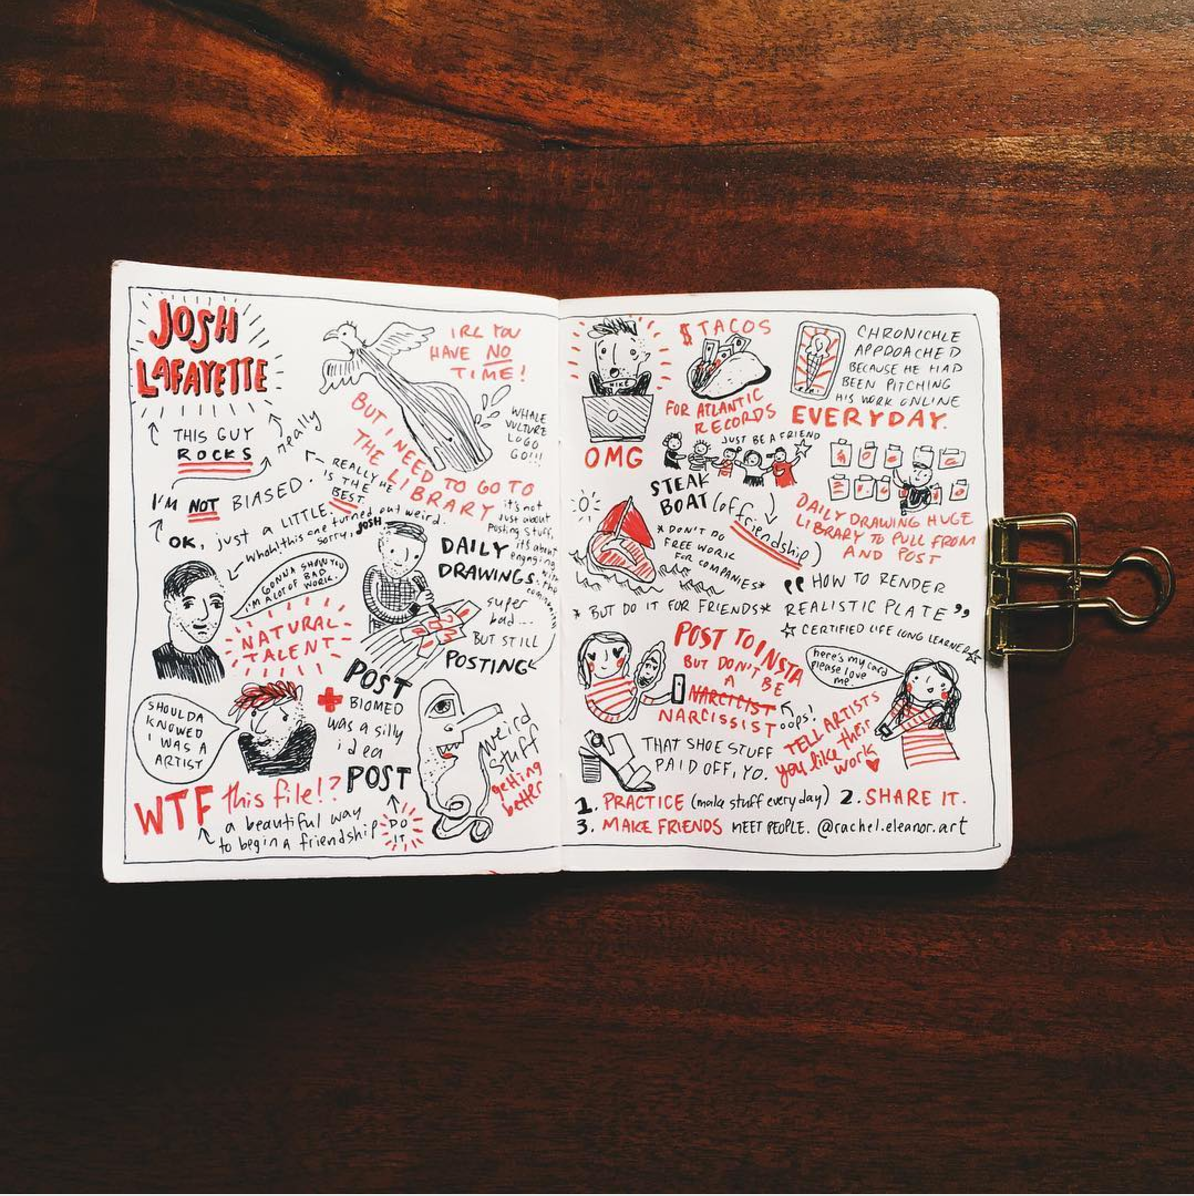 JOSH
LAFAYETTE
THIS GUY
ROCKS
really
I'M NOT BIASED.
OK, just a LITTLE.
REALLY HE
IS THE
BEST.
whoah! this one turned out weird.
Sorry, JOSH
IRL YOU
HAVE NO
TIME!
BUT I NEED TO GO TO
THE LIBRARY
WHALE
VULTURE
LOGO
GO!!!
GONNA SHOW YOU
A LOT OF BAD
WORK.
NATURAL
TALENT
DAILY
DRAWINGS.
it's not
just about
posting stuff,
it's about
engaging
with
the
community
super
bad...
BUT STILL
POSTING
SHOULDA
KNOWED
I WAS A
ARTIST
POST
BIOMED
was a silly
idea
POST
DO
IT
weird
stuff
getting
better
WTF this file!?
a beautiful way
to begin a friendship
NIKE
OMG
$TACOS
FOR ATLANTIC
RECORDS
CHRONICHLE
APPDOACHED
BECAUSE HE HAD
BEEN PITCHING
HIS WORK ONLINE
EVERYDAY.
JUST BE A FRIEND
STEAK
BOAT (of friendship)
*DON'T DO
FREE WORK
FOR COMPANIES*
* BUT DO IT FOR FRIENDS*
DAILY DRAWING HUGE
LIBRARY TO PULL FROM
AND POST
"HOW TO RENDER
REALISTIC PLATE"
☆ CERTIFIED LIFE LONG LEARNER ☆
POST TO INSTA
BUT DON'T BE
A
NARCICIST
NARCISSIST
oops!
here's my card
please love
me!
TELL ARTISTS
you like their
work ♥
THAT SHOE STUFF
PAID OFF, YO.
1. PRACTICE (make stuff every day) 2. SHARE IT.
3. MAKE FRIENDS MEET PEOPLE. @rachel.eleanor.art